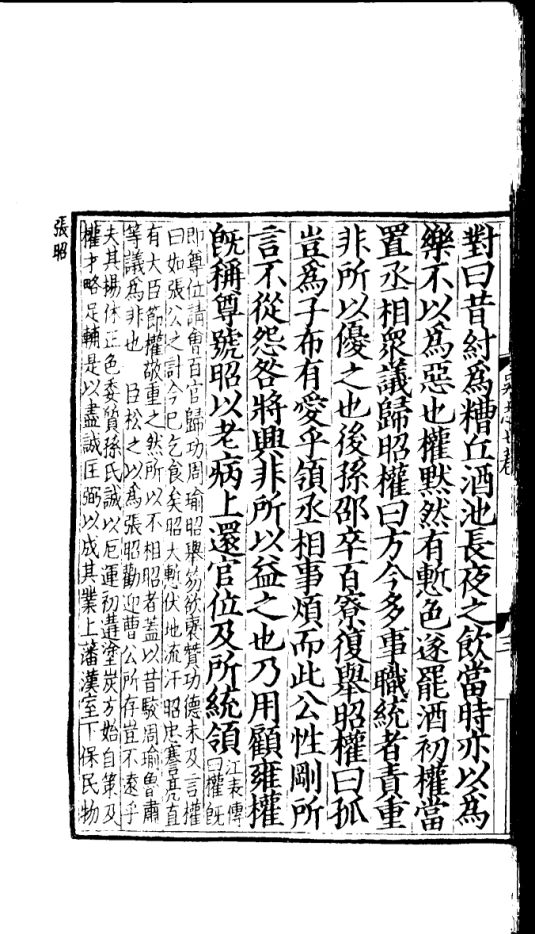 對曰昔紂為糟丘酒池長夜之飲當時亦以為
樂不以為惡也權黙然有慙色遂罷酒初權當
置丞相衆議歸昭權曰方今多事職統者責重
非所以優之也後孫邵卒百寮復舉昭權曰孤
豈為子布有愛乎領丞相事煩而此公性剛所
言不從怨咎將興非所以益之也乃用顧雍權
旣稱尊號昭以老病上還官位及所統領
江表傳
曰權旣
即尊位請會百官歸功周瑜昭舉笏欲襃贊功德未及言權
曰如張公之計今已乞食矣昭大慙伏地流汗昭忠謇亮直
有大臣節權敬重之然所以不相昭者蓋以昔駮周瑜魯肅
等議為非也 臣松之以為張昭勸迎曹公所存豈不遠乎
夫其揚休正色委質孫氏誠以厄運初遘塗炭方始自策及
權才略足輔是以盡誠匡弼以成其業上藩漢室下保民物
張昭